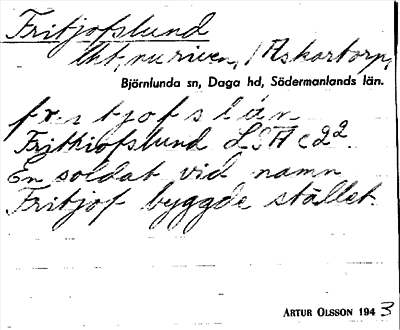 Fritjofslund
lht, nu riven, i Askartorp,
Björnlunda sn, Daga hd, Södermanlands län.
fritjofslún
Fritkiofslund LSA c22
En soldat vid namn
Fritjof byggde stället.
ARTUR OLSSON 1943